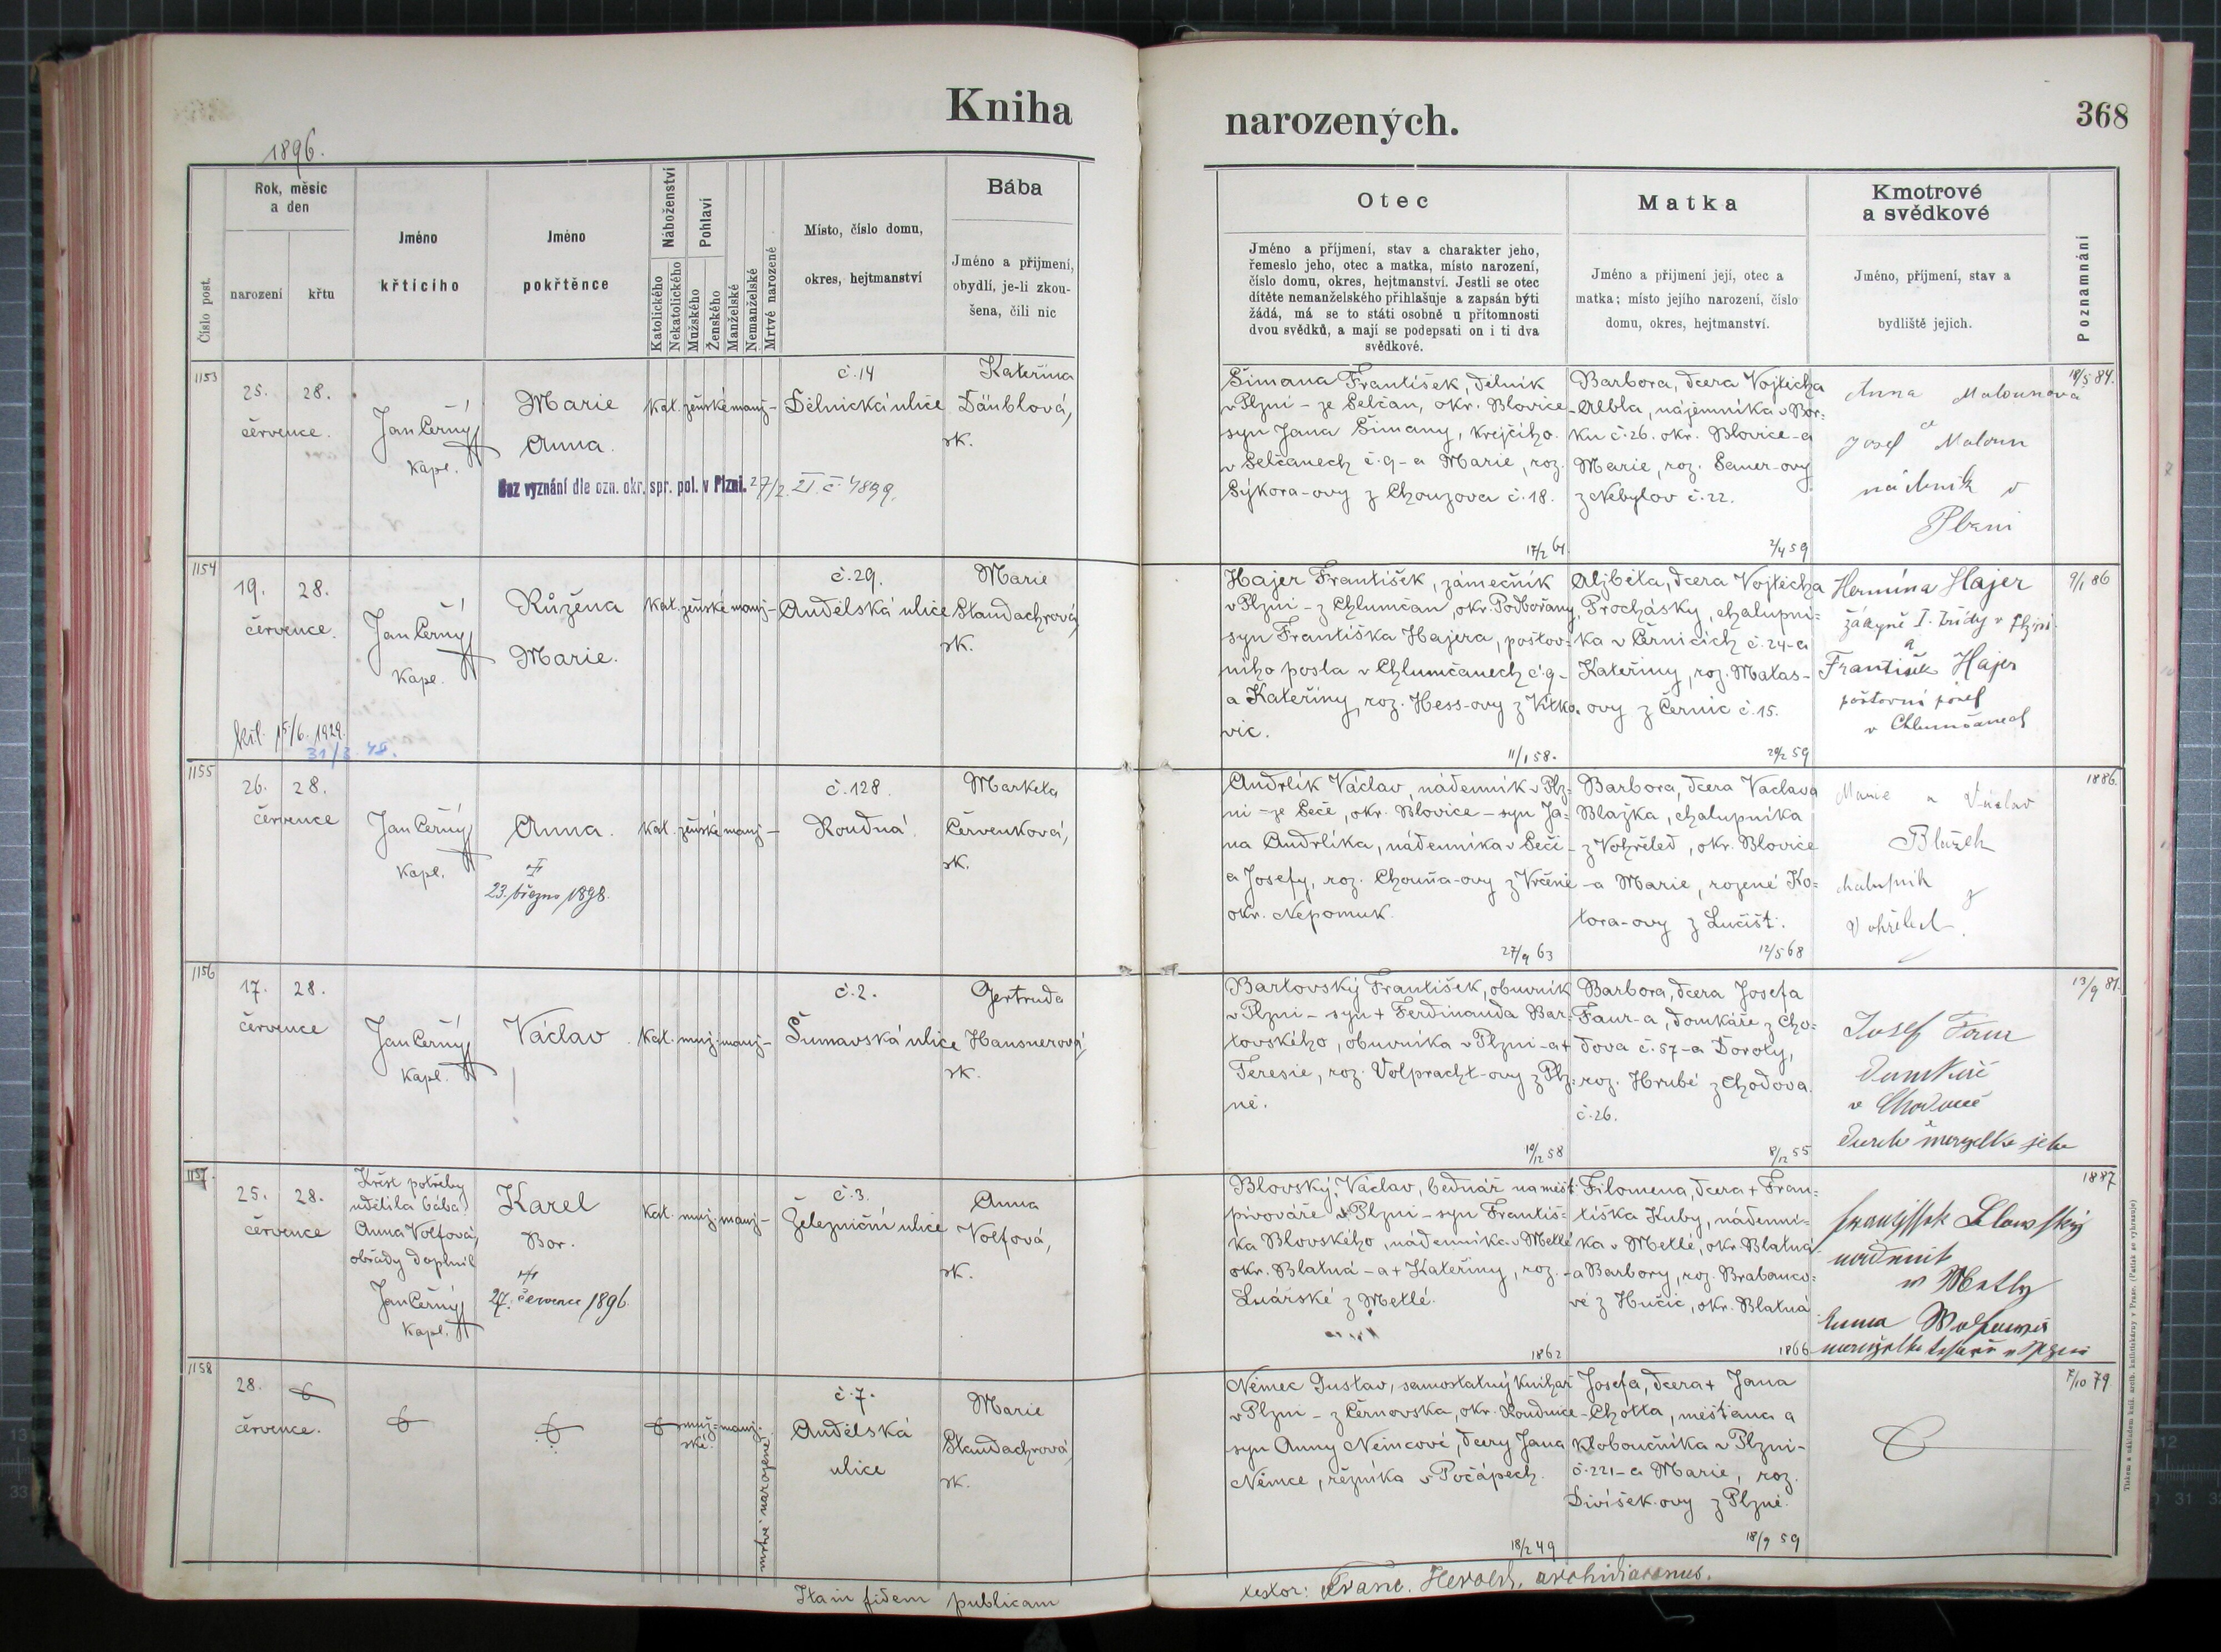 Kniha
narozených.
368
1896.
Číslo post.
Rok, měsíc
a den
narození
křtu
Jméno
křticího
Jméno
pokřtěnce
Náboženství
Katolického
Nekatolického
Pohlaví
Mužského
Ženského
Manželské
Nemanželské
Mrtvě narozené
Místo, číslo domu,
okres, hejtmanství
Bába
Jméno a přijmení,
obydlí, je-li zkou-
šena, čili nic
Otec
Jméno a příjmení, stav a charakter jeho,
řemeslo jeho, otec a matka, místo narození,
číslo domu, okres, hejtmanství. Jestli se otec
dítěte nemanželského přihlašuje a zapsán býti
žádá, má se to státi osobně u přítomnosti
dvou svědků, a mají se podepsati on i ti dva
svědkové.
Matka
Jméno a přijmení její, otec a
matka; místo jejího narození, číslo
domu, okres, hejtmanství.
Kmotrové
a svědkové
Jméno, příjmení, stav a
bydliště jejich.
Poznamnání
1153
25. 28.
července.
Jan Černý
kapl.
Marie
Anna.
kat. ženské manž-
č. 14
Dělnická ulice
Kateřina
Däublová,
zk.
Bez vyznání dle ozn. okr. spr. pol. v Plzni. 27/2. 21. č. 4899.
Šimana František, dělník
v Plzni - ze Selčan, okr. Blovice -
syn Jana Šimany, krejčího
v Selčanech č. 9 - a Marie, roz.
Sýkora-ovy z Chouzova č. 18.
17/2 61.
Barbora, dcera Vojtěcha
Albla, nájemníka v Bor-
ku č. 26. okr. Blovice - a
Marie, roz. Sauer-ovy
z Nebylov č. 22.
2/4 59
Anna Malounová
a
Josef Maloun
nádeník v
Plzni
18/5 84.
1154
19. 28.
července.
Jan Černý
kapl.
Růžena
Marie.
kat. ženské manž-
č. 29.
Andělská ulice
Marie
Standachrová,
zk.
křl. 15/6. 1929.
31/3. 48.
Hajer František, zámečník
v Plzni - z Chlumčan, okr. Podbořany,
syn Františka Hajera, poštov-
ního posla v Chlumčanech č. 9 -
a Kateřiny, roz. Hess-ovy z Vitko-
vic.
11/1 58.
Alžběta, dcera Vojtěcha
Procházky, chalupní-
ka v Černicích č. 24 - a
Kateřiny, roz. Matas-
ovy z Černic č. 15.
29/2 59
Hermína Hajer
žákyně I. třídy v Plzni
a
František Hajer
poštovní posel
v Chlumčanech
9/1 86
1155
26. 28.
července
Jan Černý
kapl.
Anna.
23. března 1898.
kat. ženské manž-
č. 128.
Roudná.
Marketa
Červenková,
zk.
Andrlík Václav, nádenník v Plz-
ni - ze Seče, okr. Blovice - syn Ja-
na Andrlíka, nádenníka v Seči -
a Josefy, roz. Chouňa-ovy z Vrčeně
okr. Nepomuk.
27/9 63
Barbora, dcera Václava
Blažka, chalupníka
z Vohřeled, okr. Blovice
- a Marie, rozené Ko-
tora-ovy z Lučišt.
12/5 68
Marie a Václav
Blažek
chalupník
z
Vohřeled.
1886.
1156
17. 28.
července
Jan Černý
kapl.
Václav
kat. muž. manž-
č. 2.
Šumavská ulice
Gertruda
Hausnerová,
zk.
Bartovský František, obuvník
v Plzni - syn + Ferdinanda Bar-
tovského, obuvníka v Plzni - a +
Teresie, roz. Volpracht-ovy z Plz-
ně.
10/12 58
Barbora, dcera Josefa
Faur-a, domkáře z Cho-
dova č. 57 - a Doroty,
roz. Hrubé z Chodova
č. 26.
8/12 55
Josef Faur
Domkář
v Chodově
13/9 81.
1157.
25. 28.
července
Křest potřeby
udělila bába
Anna Volfová,
obřady doplnil
Jan Černý
kapl.
Karel
Bor.
27. července 1896.
kat. muž. manž-
č. 3.
Železniční ulice
Anna
Volfová,
zk.
Blovský Václav, bednář na měšt.
pivováře v Plzni - syn Františ-
ka Blovského, nádenníka v Metlé
okr. Blatná - a + Kateřiny, roz.
Lnářské z Metlé.
1862
Filomena, dcera + Fran-
tiška Kuby, nádenní-
ka v Metlé, okr. Blatná
- a Barbory, roz. Brabanco-
vé z Hučic, okr. Blatná
1866
v Metly
Anna
1887
1158
28.
července.
muž-
ské.
manž.
mrtvě narozené
č. 7.
Andělská
ulice
Marie
Standachrová,
zk.
Němec Gustav, samostatný knihař
v Plzni - z Černovska, okr. Roudnice -
syn Anny Němcové, dcery Jana
Němce, řezníka v Počápech.
18/2 49
Josefa, dcera + Jana
Chotta, měšťana a
kloboučníka v Plzni -
č. 221 - a Marie, roz.
Divíšek-ovy z Plzně.
18/9 59
7/10 79
Itam fidem publicam
testor: Franc. Herold, archidiaconus.